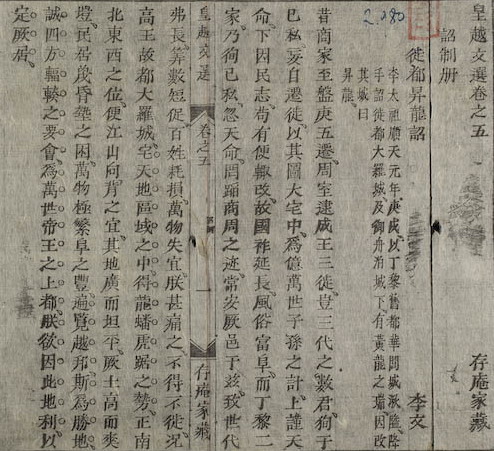 皇越文選卷之五 存庵家藏
詔制册
徙都昇龍詔 李文
李太祖順天元年庚戌以丁黎舊都華閭城湫隘降
手詔徙都大羅城及御舟泊城下有黃龍之瑞因改
其城曰
昇龍
昔商家至盤庚五遷周室逮成王三徙豈三代之數君狥于
己私妄自遷徙以其圖大宅中爲億萬世子孫之計上謹天
命下因民志苟有便輒改故國祚延長風俗富阜而丁黎二
家乃徇己私忽天命罔蹈商周之迹常安厥邑于茲致世代
皇越文選 卷之五 一 存庵家藏
弗長筭數短促百姓耗損萬物失宜朕甚痛之不得不徙况
高王故都大羅城宅天地區域之中得龍蟠虎踞之勢正南
北東西之位便江山向背之宜其地廣而坦平厥土高而爽
塏民居蔑昏墊之困萬物極繁阜之豐遍覽越邦斯爲勝地
誠四方輻輳之要會爲萬世帝王之上都朕欲因此地利以
定厥居
2280